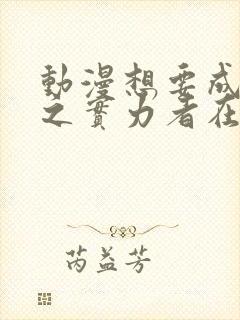 動漫想要成
之實力者在
芮益芳